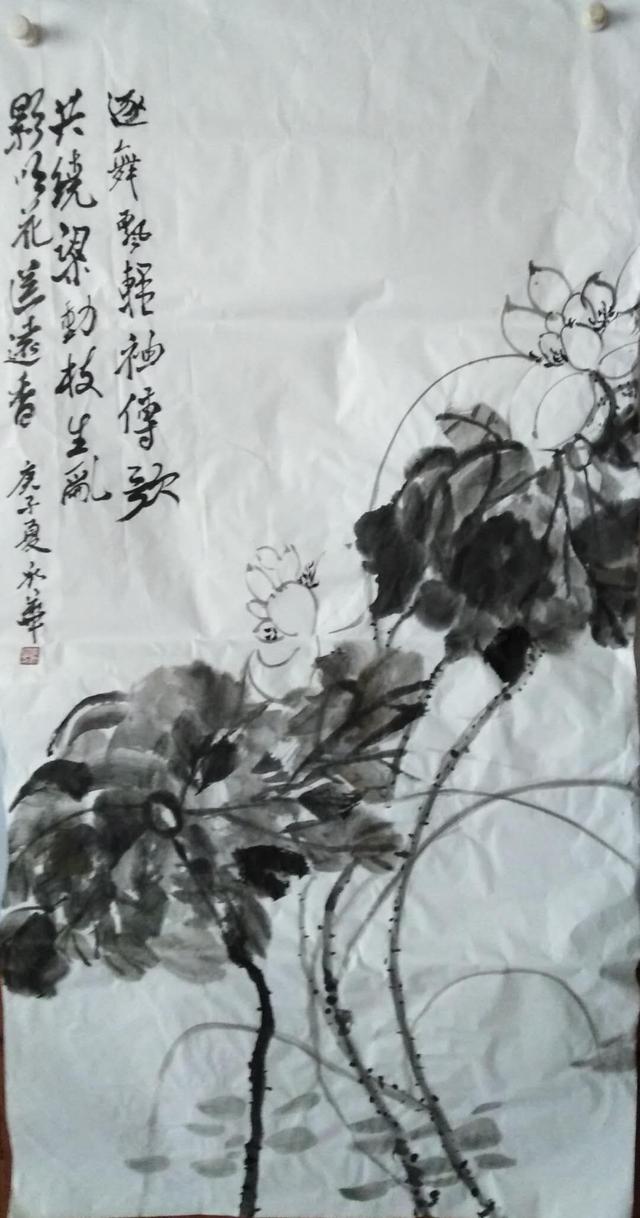 逐舞飄輕袖傳歌
共繞梁動枝生亂
影吹花送遠香
庚子夏永華